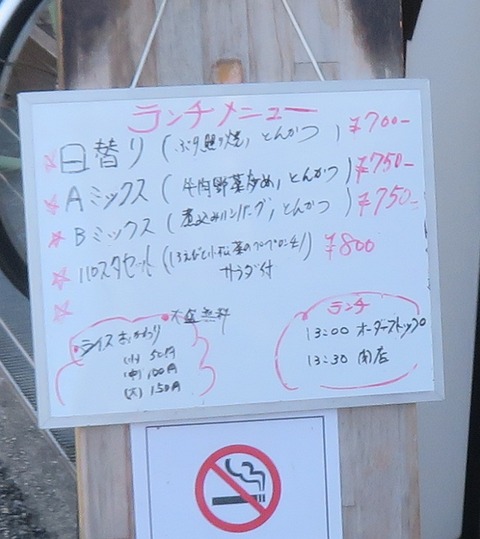 ランチメニュー
日替り(ぶり照り焼, とんかつ) ¥700-
Aミックス(牛肉野菜炒め, とんかつ) ¥750-
Bミックス(煮込みハンバーグ, とんかつ) ¥750-
パスタセット(小えびと小松菜のペペロンチーノ) ¥800
サラダ付
大盛無料
ライスおかわり
(小) 50円
(中) 100円
(大) 150円
ランチ
13:00 オーダーストップ
13:30 閉店